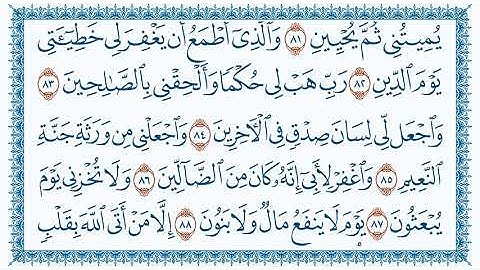 يُمِيتُنِي ثُمَّ يُحْيِينِ ٨١ وَالَّذِي أَطْمَعُ أَن يَغْفِرَ لِي خَطِيئَتِي
يَوْمَ الدِّينِ ٨٢ رَبِّ هَبْ لِي حُكْمًا وَأَلْحِقْنِي بِالصَّالِحِينَ ٨٣
وَاجْعَل لِّي لِسَانَ صِدْقٍ فِي الْآخِرِينَ ٨٤ وَاجْعَلْنِي مِن وَرَثَةِ جَنَّةِ
النَّعِيمِ ٨٥ وَاغْفِرْ لِأَبِي إِنَّهُ كَانَ مِنَ الضَّالِّينَ ٨٦ وَلَا تُخْزِنِي يَوْمَ
يُبْعَثُونَ ٨٧ يَوْمَ لَا يَنفَعُ مَالٌ وَلَا بَنُونَ ٨٨ إِلَّا مَنْ أَتَى اللَّهَ بِقَلْبٍ